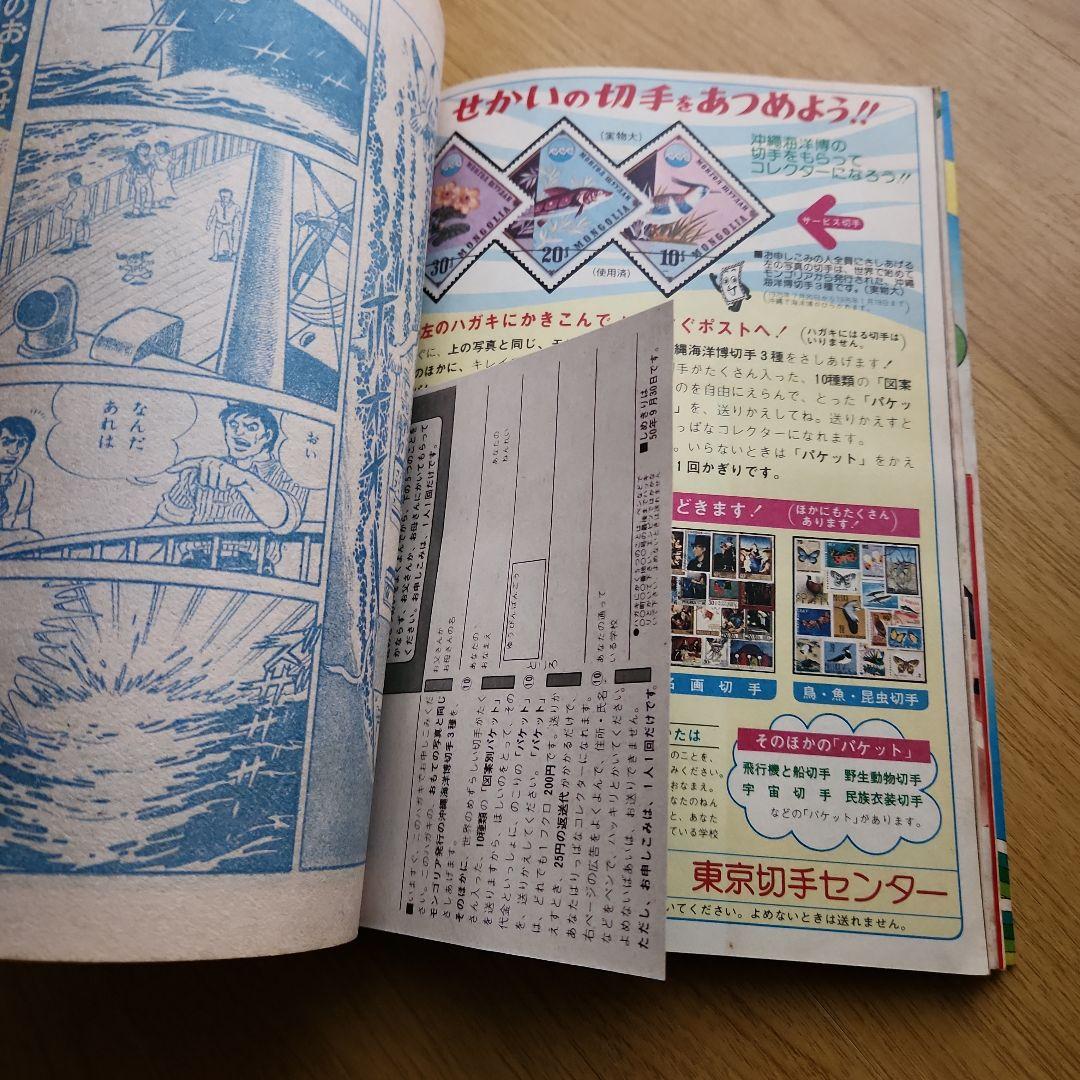 のおしらせ
なんだ
あれは
おい
せかいの切手をあつめよう!!
(実物大)
沖縄海洋博の
切手をもらって
コレクターになろう!!
サービス切手
MONGOLIA
30
MONGOLIA
20
MONGOLIA
10
(使用済)
■お申しこみの人全員にさしあげる
左の写真の切手は、世界で始めて
モンゴリアから発行された、沖縄
海洋博切手3種です。(実物大)
左のハガキにかきこんで
ぐポストへ!
(ハガキにはる切手は
いりません。)
ぐに、上の写真と同じ、モ
縄海洋博切手3種をさしあげます!
のほかに、キレイ
手がたくさん入った、10種類の「図案
のを自由にえらんで、とった「パケッ
」を、送りかえしてね。送りかえすと
っぱなコレクターになれます。
。いらないときは「パケット」をかえ
1回かぎりです。
どきます!
(ほかにもたくさん
あります!)
名画切手
鳥・魚・昆虫切手
かたは
のことを、
みください。
おなまえ。
なたのねん
と、あなた
ている学校
そのほかの「パケット」
飛行機と船切手 野生動物切手
宇宙切手 民族衣装切手
などの「パケット」があります。
東京切手センター
いてください。よめないときは送れません。
■しめきりは
50年9月30日です。
かならず、お父さんか、お母さんにかいてもらって
ください。お申しこみは、1人1回だけです。
お父さんか
お母さんの名
あなたの
おなまえ
あなたの
ねんれい
ゆうびんばんごう
あなたの通って
いる学校
■いますぐ、このハガキでお申しこみくだ
さい。このハガキの、おもての写真と同じ
モンゴリア発行の沖縄海洋博切手3種を、
さしあげます。
そのほかに、世界のめずらしい切手がたく
さん入った、10種類の「図案別パケット」
を送りますから、ほしいのをとって、その
代金といっしょに、のこりの「パケット」
を、送りかえしてください。「パケット」
は、どれでも1フクロ200円です。送りか
えすとき、25円の返送代がかかるだけで、
あなたはりっぱなコレクターになれます。
右ページの広告をよくよんで、住所・氏名
などをペンで、ハッキリとかいてください。
よめないばあいは、お送りできません。
ただし、お申しこみは、1人1回だけです。